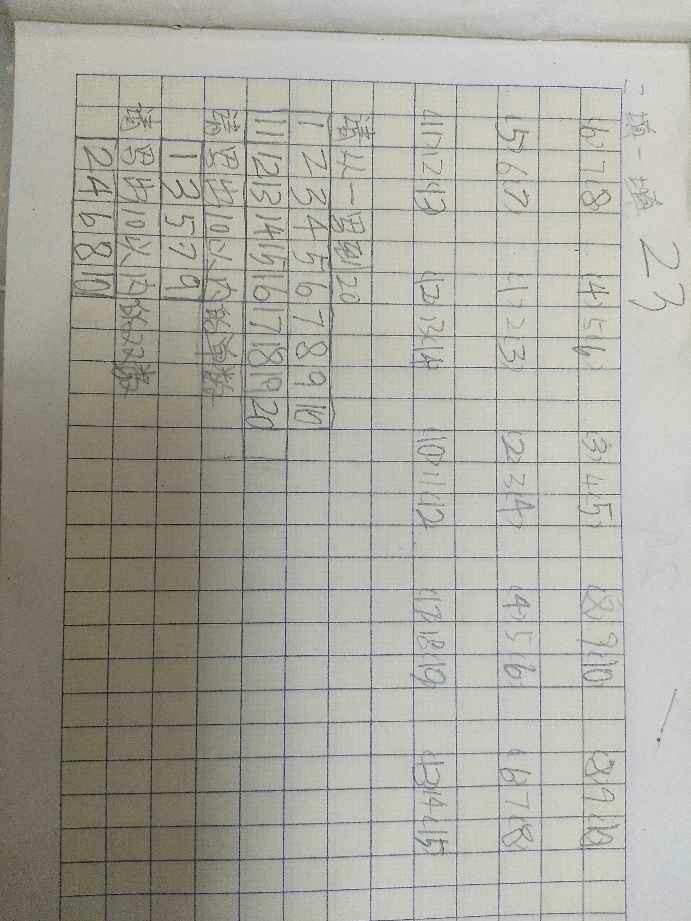 23
一、填一填
(6) 7 (8) (4) 5 (6) (3) 4 (5) (8) 9 (10) (8) 9 (10)
(5) 6 (7) (1) 2 (3) (2) 3 (4) (4) 5 (6) (6) 7 (8)
(11) 12 (13) (12) 13 (14) (10) 11 (12) (17) 18 (19) (13) 14 (15)
请从一写到20
1 2 3 4 5 6 7 8 9 10
11 12 13 14 15 16 17 18 19 20
请写出10以内的单数
1 3 5 7 9
请写出10以内的双数
2 4 6 8 10